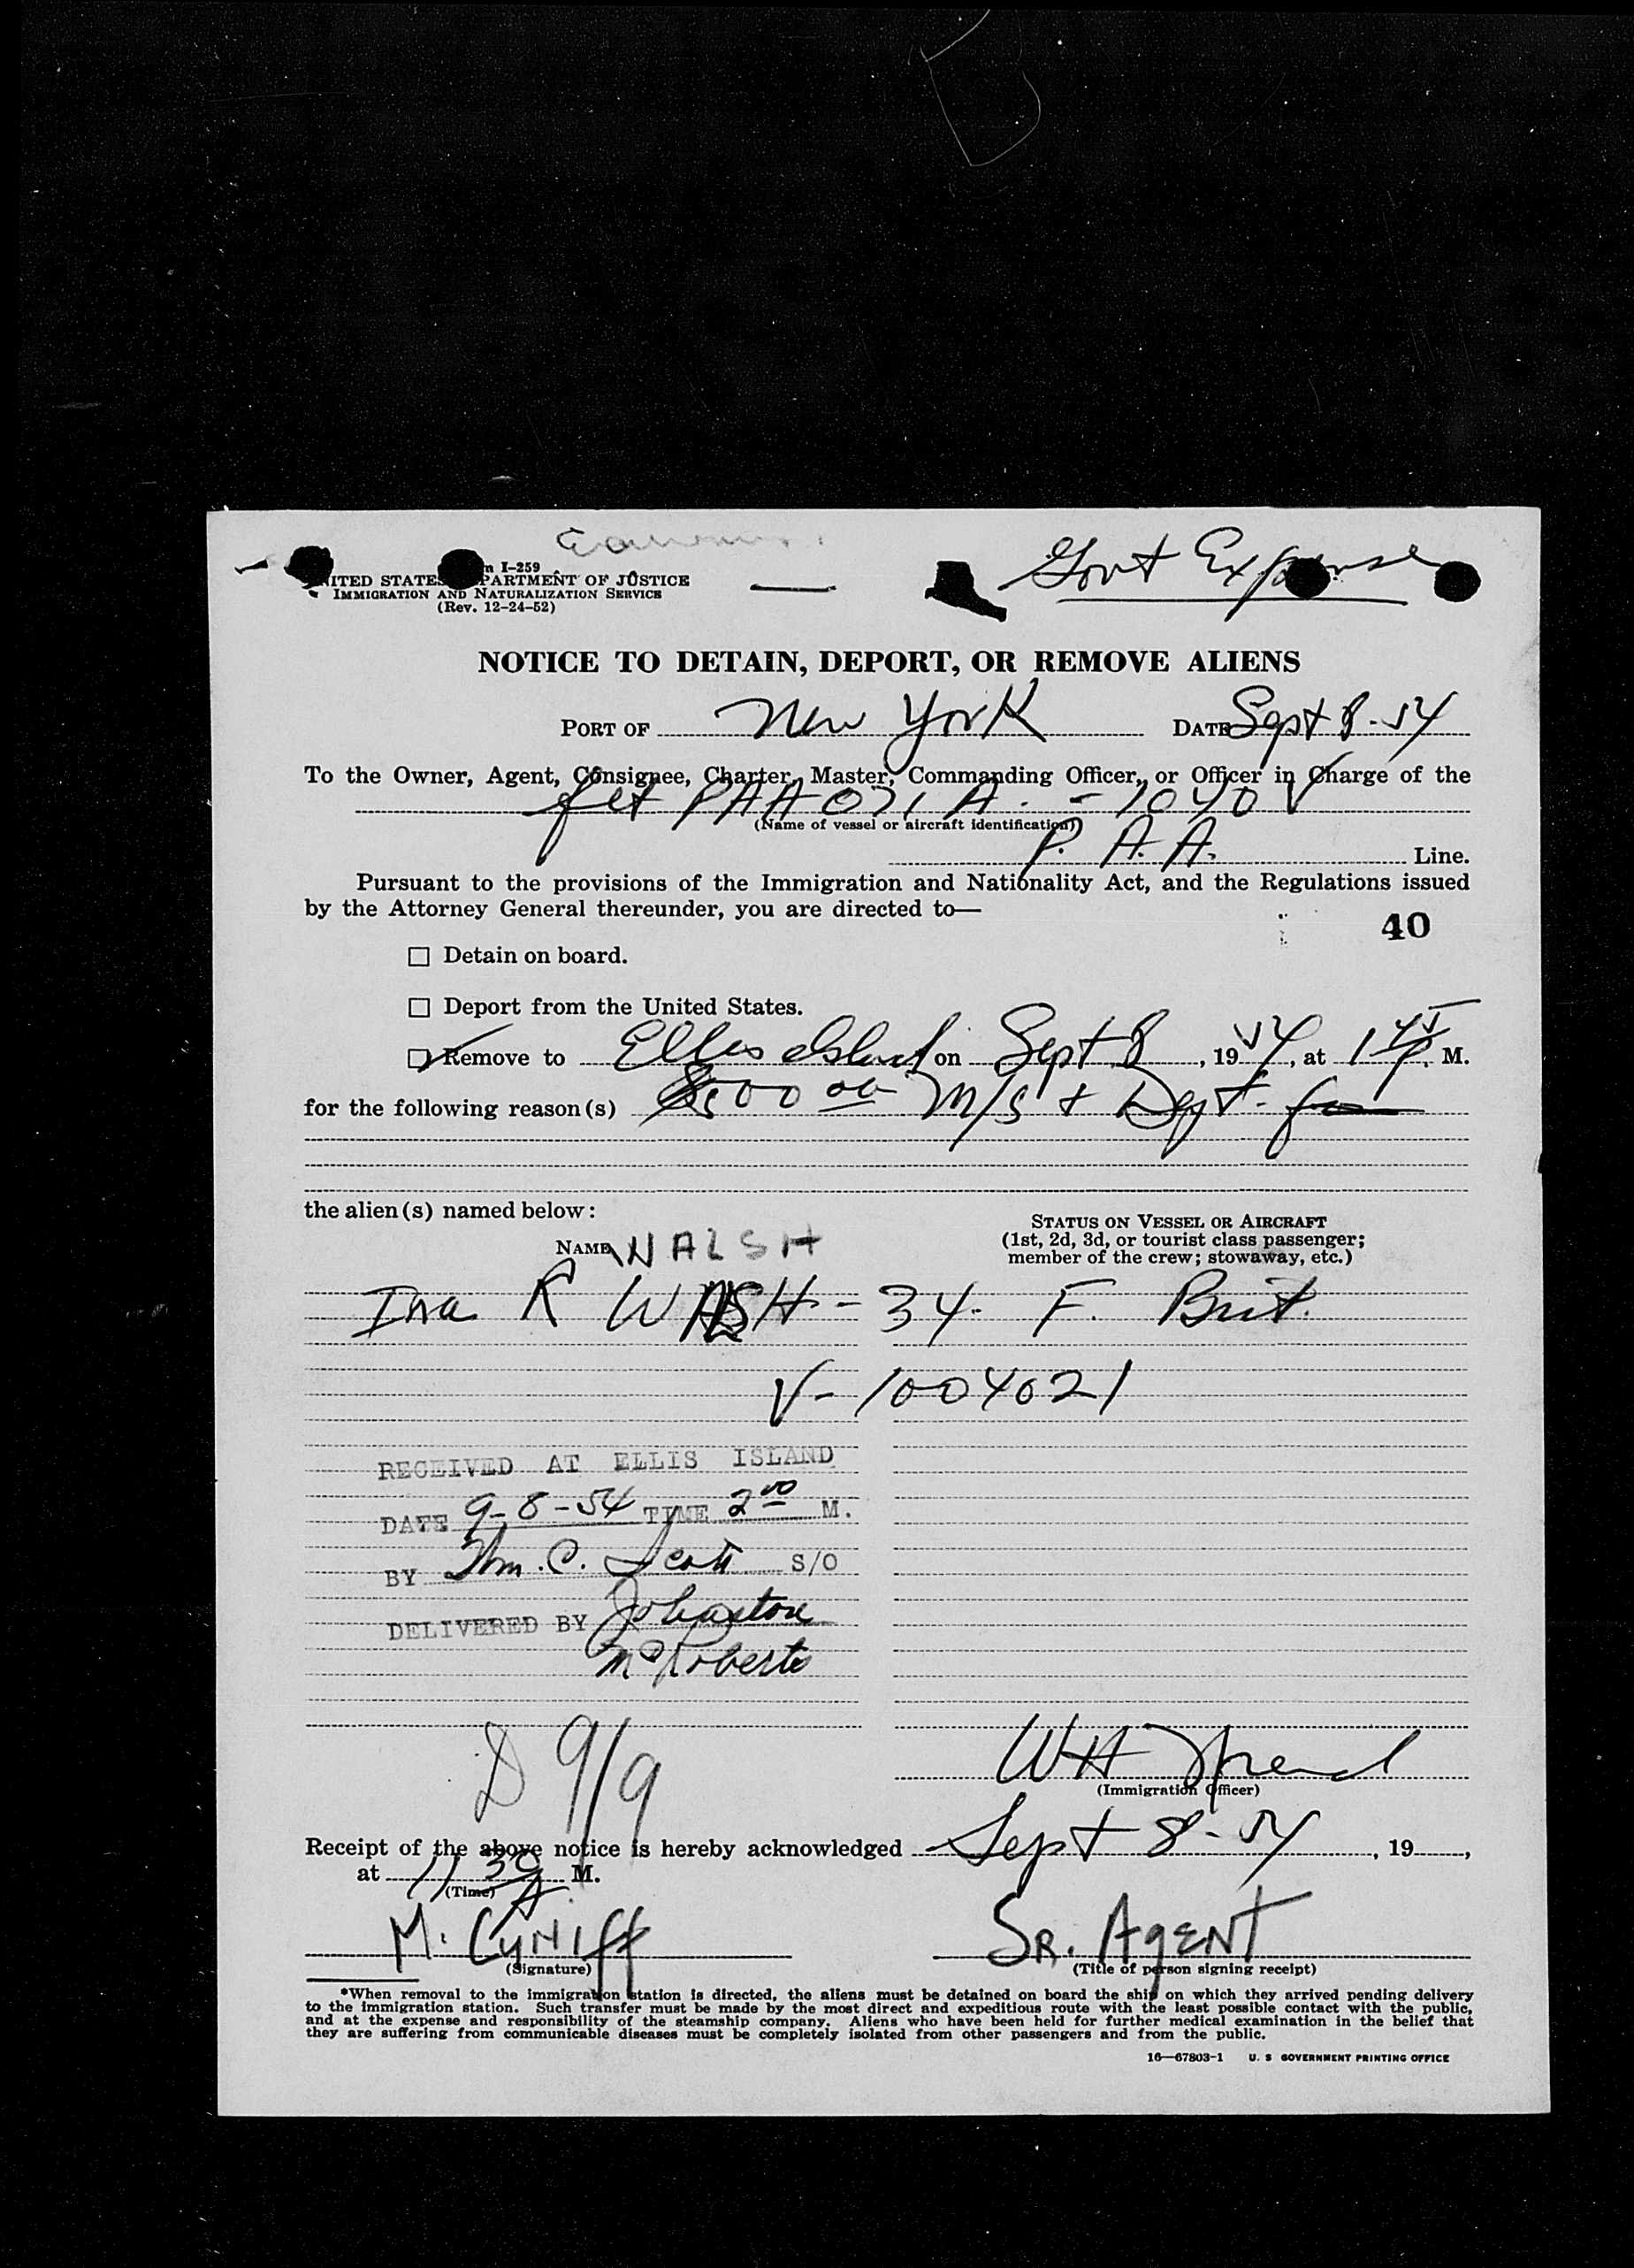 Govt Expense
I-259
UNITED STATES DEPARTMENT OF JUSTICE
IMMIGRATION AND NATURALIZATION SERVICE
(Rev. 12-24-52)
NOTICE TO DETAIN, DEPORT, OR REMOVE ALIENS
PORT OF New York DATE Sept 8-54
To the Owner, Agent, Consignee, Charter, Master, Commanding Officer, or Officer in Charge of the
flt PAA 071 A. - 1040
(Name of vessel or aircraft identification)
P. A. A. Line.
Pursuant to the provisions of the Immigration and Nationality Act, and the Regulations issued
by the Attorney General thereunder, you are directed to—
40
☐ Detain on board.
☐ Deport from the United States.
☑ Remove to Ellis Island on Sept 8, 1954, at 1 45 P. M.
for the following reason(s) 500 00 M/S + Dept.
the alien(s) named below:
NAME WALSH
STATUS ON VESSEL OR AIRCRAFT
(1st, 2d, 3d, or tourist class passenger;
member of the crew; stowaway, etc.)
Ina R WALSH - 34. F. Brit.
V-1004021
RECEIVED AT ELLIS ISLAND
DATE 9-8-54 TIME 2 00 M.
BY Wm. C. Scott S/O
DELIVERED BY Johnston
McRoberts
D 9/9
WH
(Immigration Officer)
Receipt of the above notice is hereby acknowledged Sept 8-54, 19___,
at 11 30 A M.
(Time)
M. CyNiff SR. AgENT
(Signature) (Title of person signing receipt)
*When removal to the immigration station is directed, the aliens must be detained on board the ship on which they arrived pending delivery
to the immigration station. Such transfer must be made by the most direct and expeditious route with the least possible contact with the public,
and at the expense and responsibility of the steamship company. Aliens who have been held for further medical examination in the belief that
they are suffering from communicable diseases must be completely isolated from other passengers and from the public.
16—67803-1 U. S GOVERNMENT PRINTING OFFICE